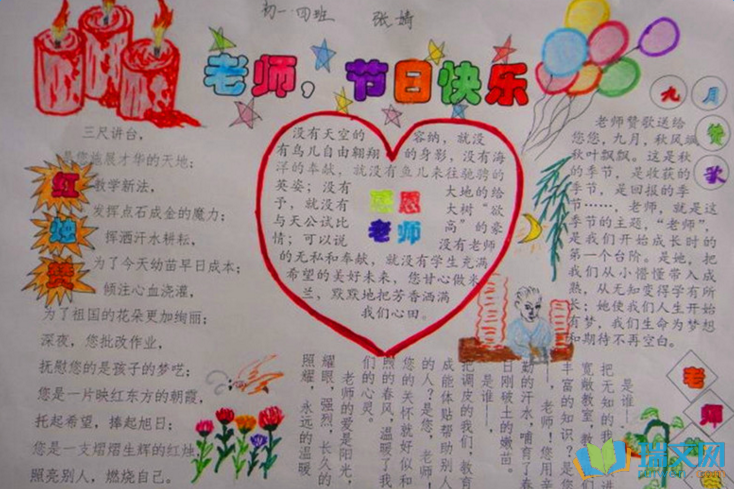 初一·四班 张婧
老师,节日快乐
红烛赞
三尺讲台,
是您施展才华的天地;
教学新法,
发挥点石成金的魔力;
挥洒汗水耕耘,
为了今天幼苗早日成本;
倾注心血浇灌,
为了祖国的花朵更加绚丽;
深夜,您批改作业,
抚慰您的是孩子的梦呓;
您是一片映红东方的朝霞,
托起希望,捧起旭日;
您是一支熠熠生辉的红烛,
照亮别人,燃烧自己。
感恩
老师
没有天空的容纳,就没
有鸟儿自由翱翔的身影,没有海
洋的奉献,就没有鱼儿来往驰骋的
英姿;没有大地的给
予,就没有大树“欲
与天公试比高”的豪
情;可以说没有老师
的无私和奉献,就没有学生充满
希望的美好未来,您甘心做米
兰,默默地把芳香洒满
我们心田。
九月赞歌
老师赞歌送给
您您,九月,秋风飘
秋叶飘飘。这是秋
的季节,是收获的
季节,是回报的季
节……,老师,就是这
季节的主题,“老师”,
是我们开始成长时的
第一个台阶。是她,把
我们从小懵懂带入成
熟,从无知变得学有所
长;她使我们人生开始
有梦,我们生命为梦想
和期待不再空白。
是谁——
把无知的我们
宽敞教室,教
丰富的知识?是您
——老师!您用辛
勤的汗水,哺育了春
日刚破土的嫩苗。
是谁——
把调皮的我们,教育
成能体贴帮助别人
的人?是您,老师!
您的关怀就好似和
煦的春风,温暖了我
们的心灵。
老师的爱是阳光,
耀眼、强烈、长久的
照耀,永远的温暖
老师
瑞文网